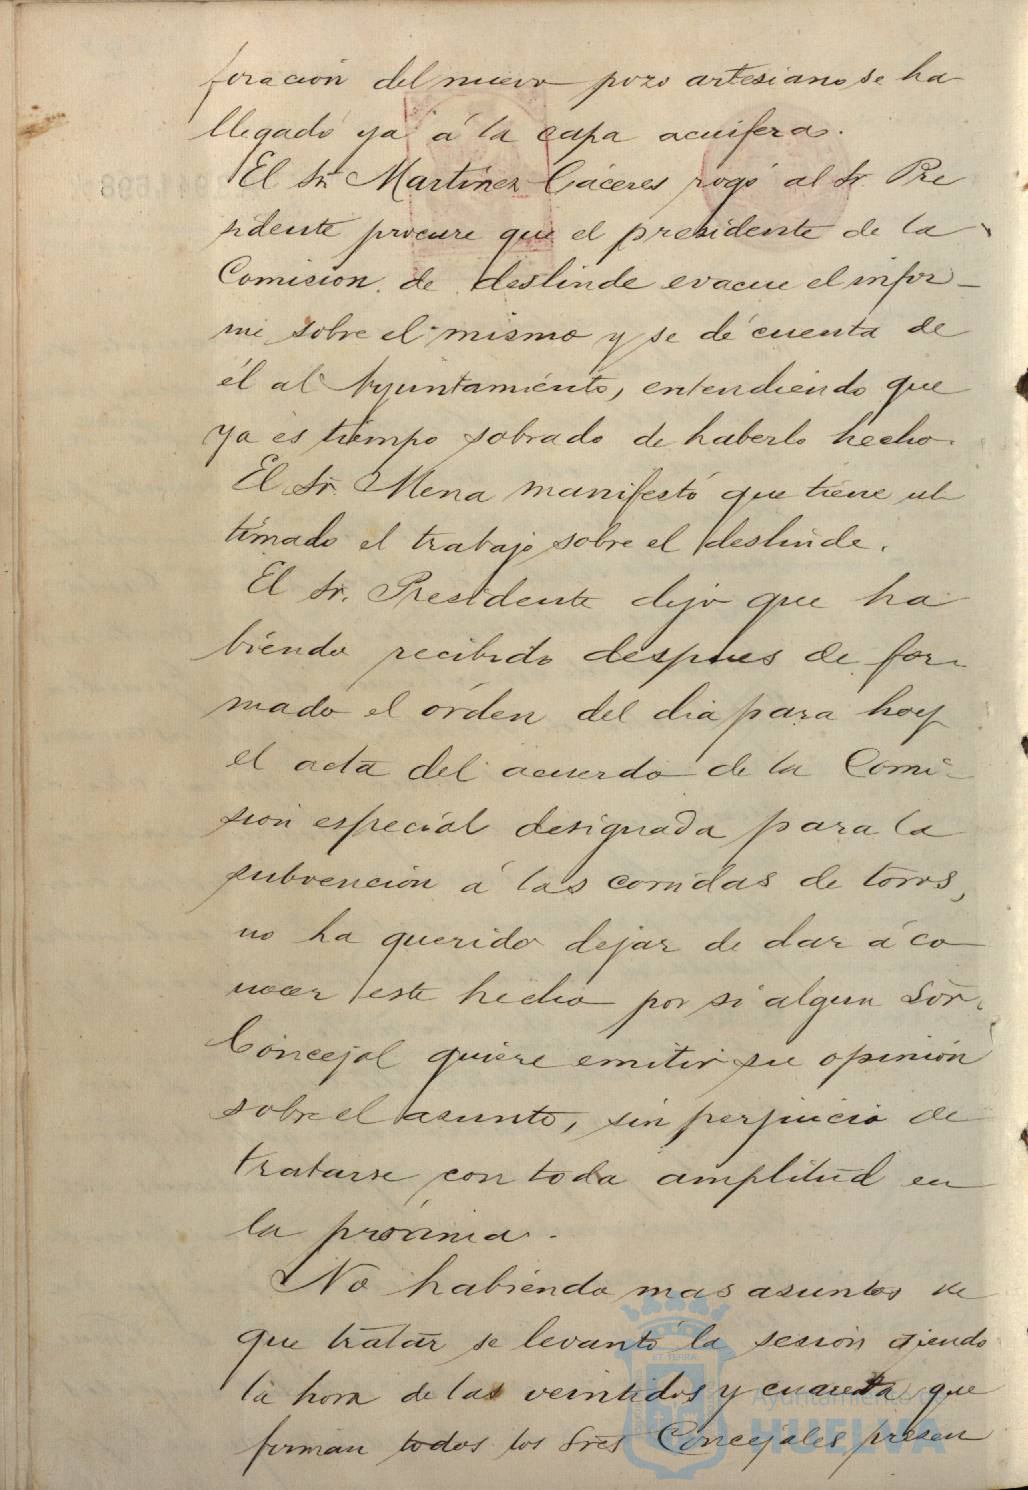 foración del nuevo pozo artesiano se ha
llegado ya á la capa acuifera.
El Sr. Martínez Cáceres rogó al Sr. Pre
sidente procure que el presidente de la
Comision de deslinde evacue el infor-
me sobre el mismo y se dé cuenta de
él al Ayuntamiento, entendiendo que
ya es tiempo sobrado de haberlo hecho.
El Sr. Mena manifestó que tiene ul
timado el trabajo sobre el deslinde.
El Sr. Presidente dijo que ha
biendo recibido despues de for-
mado el órden del dia para hoy
el acta del acuerdo de la Comi-
sion especial designada para la
subvención á las corridas de toros,
no ha querido dejar de dar á co
nocer este hecho por si algun Sor.
Concejal quiere emitir su opinión
sobre el asunto, sin perjuicio de
tratarse con toda amplitud en
la próxima.
No habiendo mas asuntos de
que tratar se levantó la sesión siendo
la hora de las veintidos y cuarenta que
firman todos los Sres Concejales presen
Ayuntamiento de
HUELVA